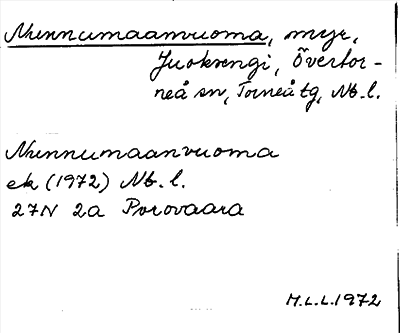 Nunnumaanvuoma, myr,
Juoksengi, Övertor-
neå sn, Torneå tg, Nb.l.
Nunnumaanvuoma
ek (1972) Nb.l.
27N 2a Porovaara
M.L.L. 1972